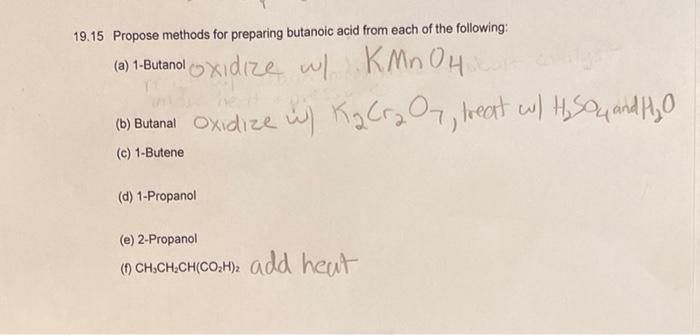 19.15 Propose methods for preparing butanoic acid from each of the following:
(a) 1-Butanol oxidize w/ KMnO4
(b) Butanal oxidize w/ K₂Cr₂O₇, treat w/ H₂SO₄ and H₂O
(c) 1-Butene
(d) 1-Propanol
(e) 2-Propanol
(f) CH₃CH₂CH(CO₂H)₂ add heat